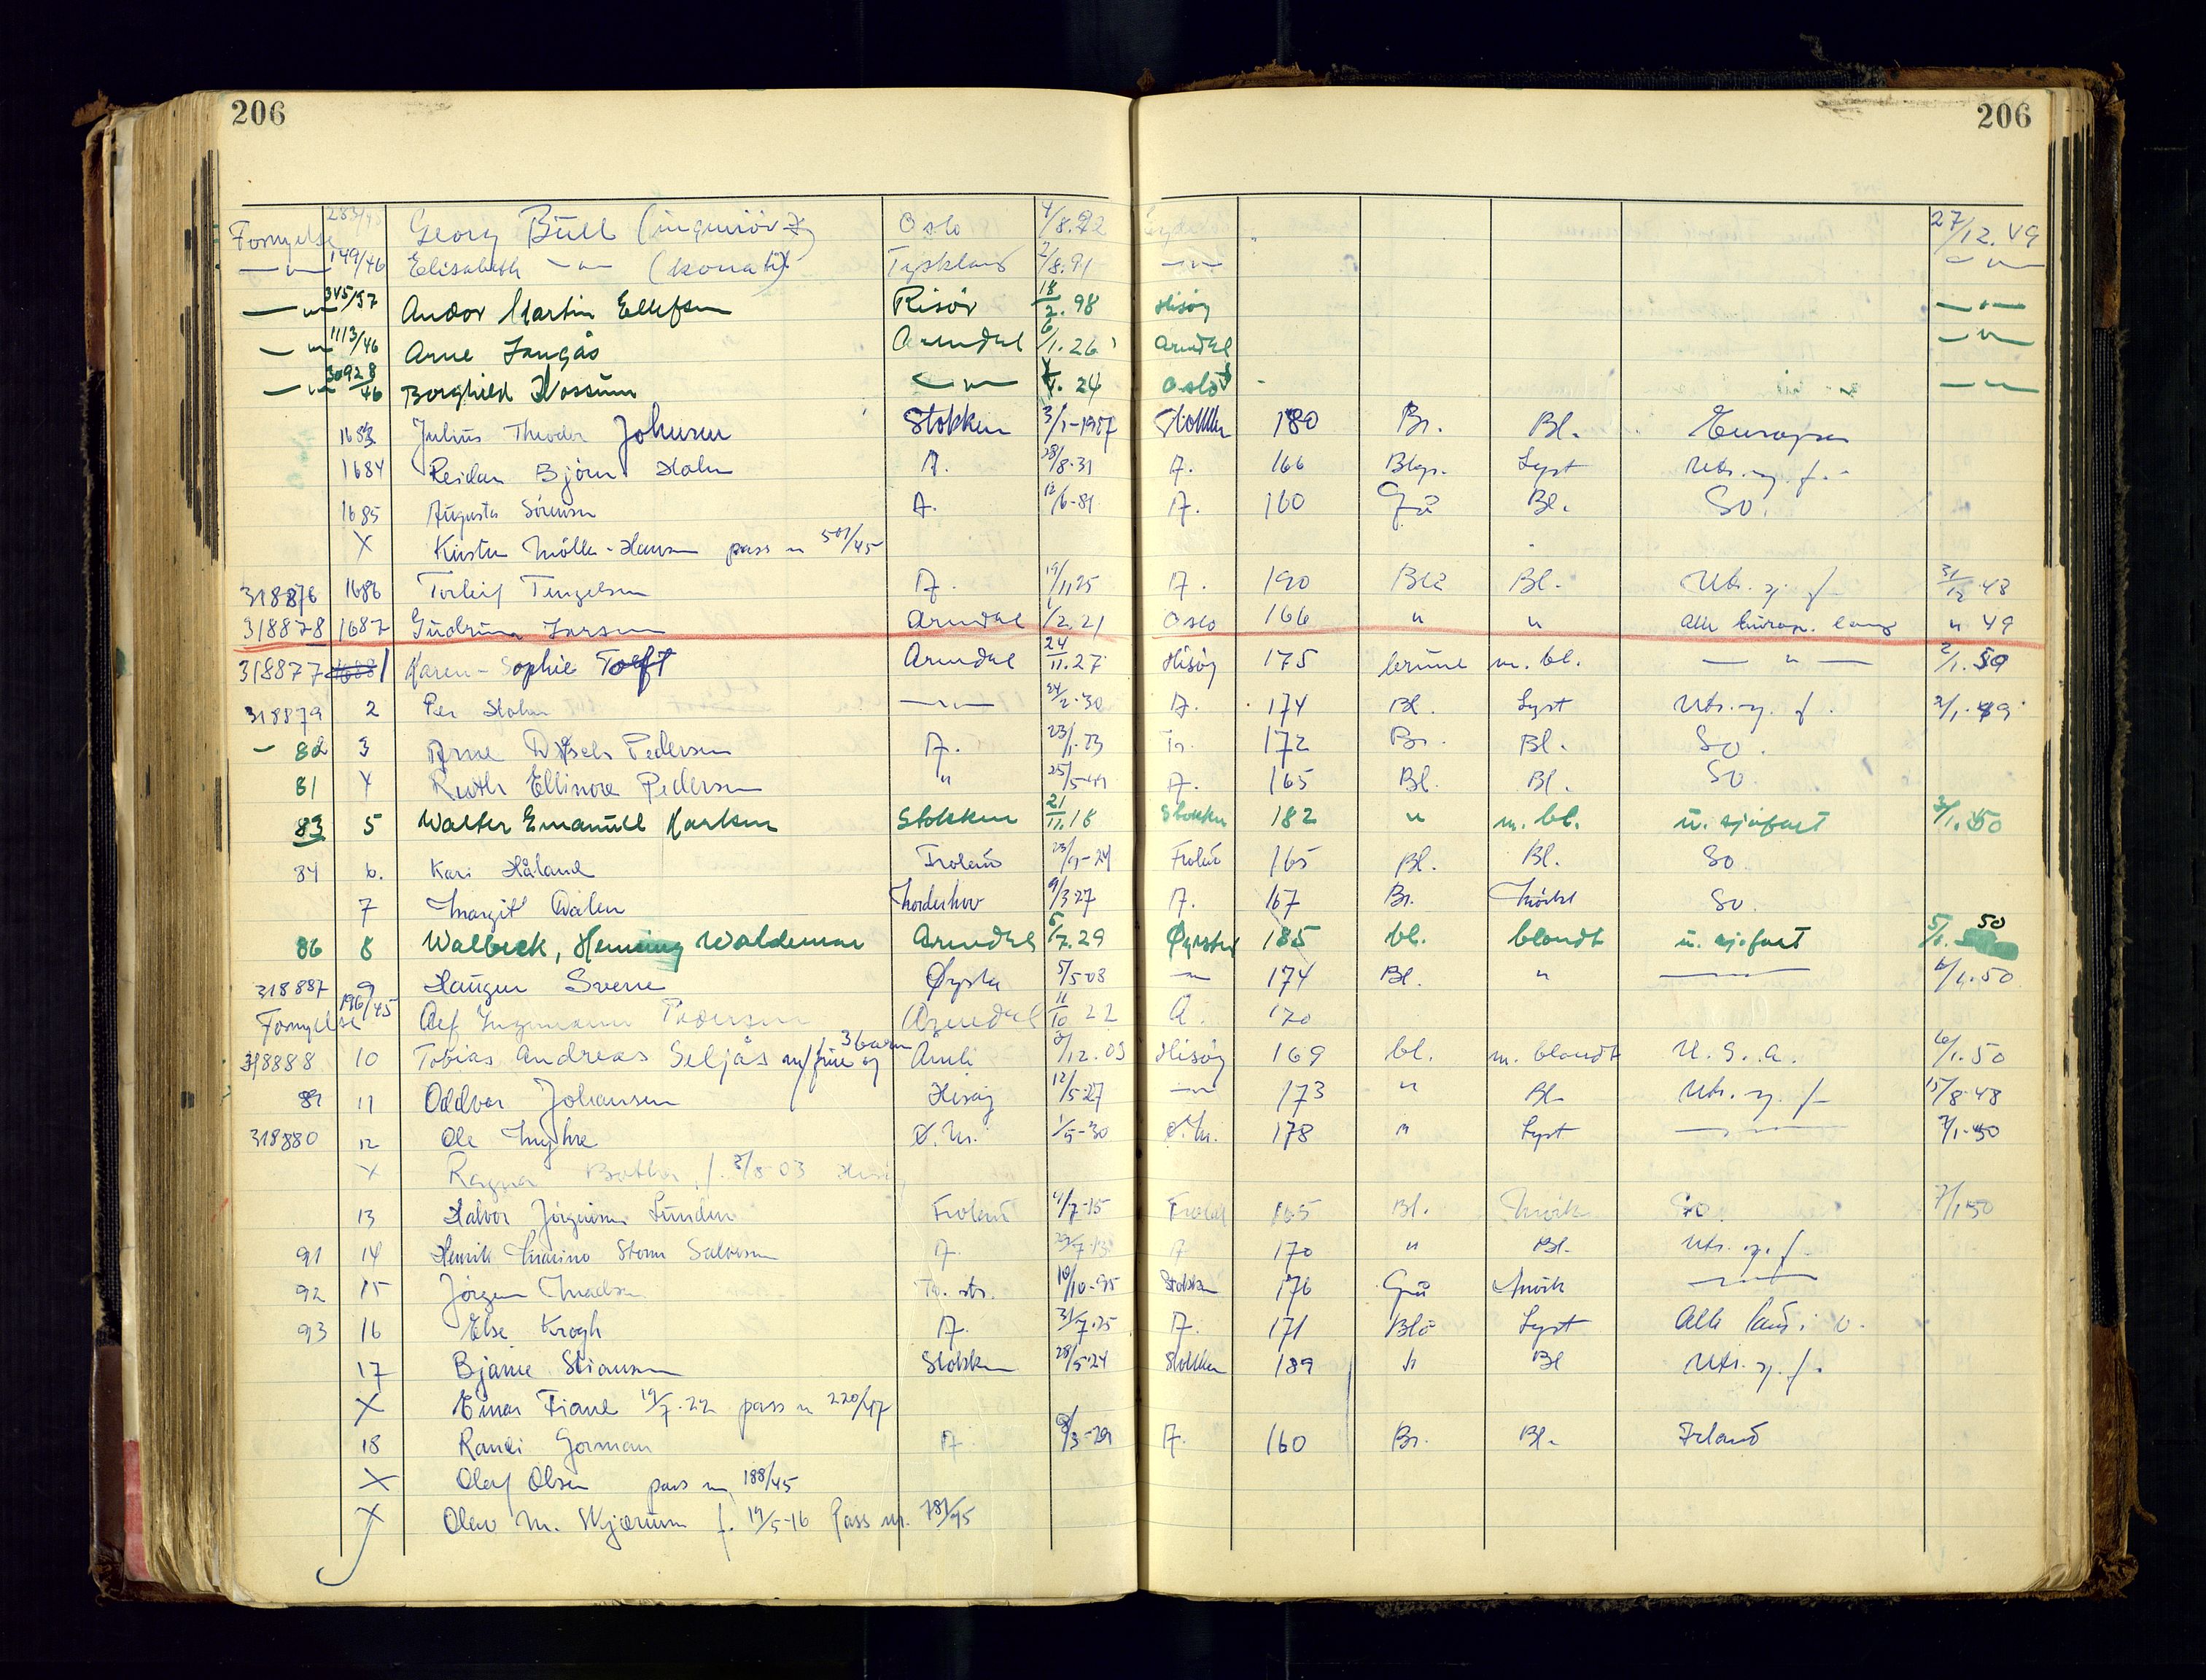 206 206
Fornyelse 283/45 Georg Büll (ingeniör) Oslo 4/8.92 27/12.49
— " — 149/46 Elisabeth — " — (kona til) Tyskland 2/8.91 — " — — " —
— " — 345/57 Andor Martin Ellefsen Risör 18/2.98 Hisöy — " —
— " — 1113/46 Arne Langås Arendal 6/1.26 Arendal — " —
— " — 30928/46 Borghild Kossum — " — 24 Oslo — " —
1683 Julius Theodor Johnsen Stokken 3/1-1907 Stokken 180 Br. Bl. Europa
1684 Reidar Björn Holm A. 28/8-31 A. 166 Blgr. Lyst Utr. sj. f.
1685 Augusta Sörensen A. 12/6-81 A. 160 Grå Bl. Do.
X Kirsten Möller-Hansen pass nr 501/45
318876 1686 Torleif Tengelsen A. 19/11.25 A. 190 Blå Bl. Utr. sj. f. 31/12 48
318878 1687 Gudrun Larsen Arendal 1/2.21 Oslo 166 " " Alle europ. land " 49
318877 1688 1 Karen-Sophie Toeft Arendal 24/11.27 Hisöy 175 brune m. bl. — " — 2/1.50
318879 2 Per Holm — " — 24/2-30 A. 174 Bl. Lyst Utr. sj. f. 2/1.49
— 82 3 Arne Pedersen A. 23/1.23 Tr. 172 Br. Bl. Do.
81 4 Ruth Ellinore Pedersen " 25/5-49 A. 165 Bl. Bl. Do
83 5 Walter Emanuel Karlsen Stokken 21/11.18 Stokken 182 " m. bl. u. sjöfart 3/1.50
84 6. Kari Håland Froland 23/9-24 Froland 165 Bl. Bl. Do.
7 Margit Dalen Norderhov 9/3 27 A. 167 Br. Mörkt Do.
86 8 Walbeck, Henning Waldemar Arendal 5/7.29 Öyestad 185 bl. blondt u. sjöfart 5/1. 50
318887 9 Haugen Sverre Öyesta 5/5 03 — " — 174 Bl. " — " — 6/1.50
Fornyelse 196/45 Alf Ingemann Pedersen Arendal 11/10 22 A. 170
318888 10 Tobias Andreas Seljås m/frue og 3 barn Åmli 3/12.03 Hisöy 169 bl. m. blondt U.S.A. 6/1.50
89 11 Oddvar Johansen Hisöy 12/5-27 — " — 173 " Bl. Utr. sj. f. 15/8-48
318880 12 Ole Myhre 1/5-30 178 " Lyst — " — 7/1-50
X Ragna f. 3/8 03
13 Halvor Jörgensen Lunden Froland 4/7-15 Froland 165 Bl. Mörk Do. 7/1 50
91 14 Henrik Marino Storm Salvesen A. A. 170 " Bl. Utr. sj. f.
92 15 Jörgen Madsen 10/10-95 Stokken 176 Grå Mörk — " —
93 16 Else Krogh A. 31/7.25 A. 171 Blå Lyst Alle land i v.
17 Bjarne Stiansen Stokken 28/5-24 Stokken 189 " Bl Utr. sj. f.
X Einar Fiane 19/7.22 pass nr 220/47
18 Randi Gorman A. 9/3-29 A. 160 Br. Bl. Irland
X Olaf Olsen pass nr 188/45
X Olav M. Skjærum f. 19/5-16 Pass nr. 781/45